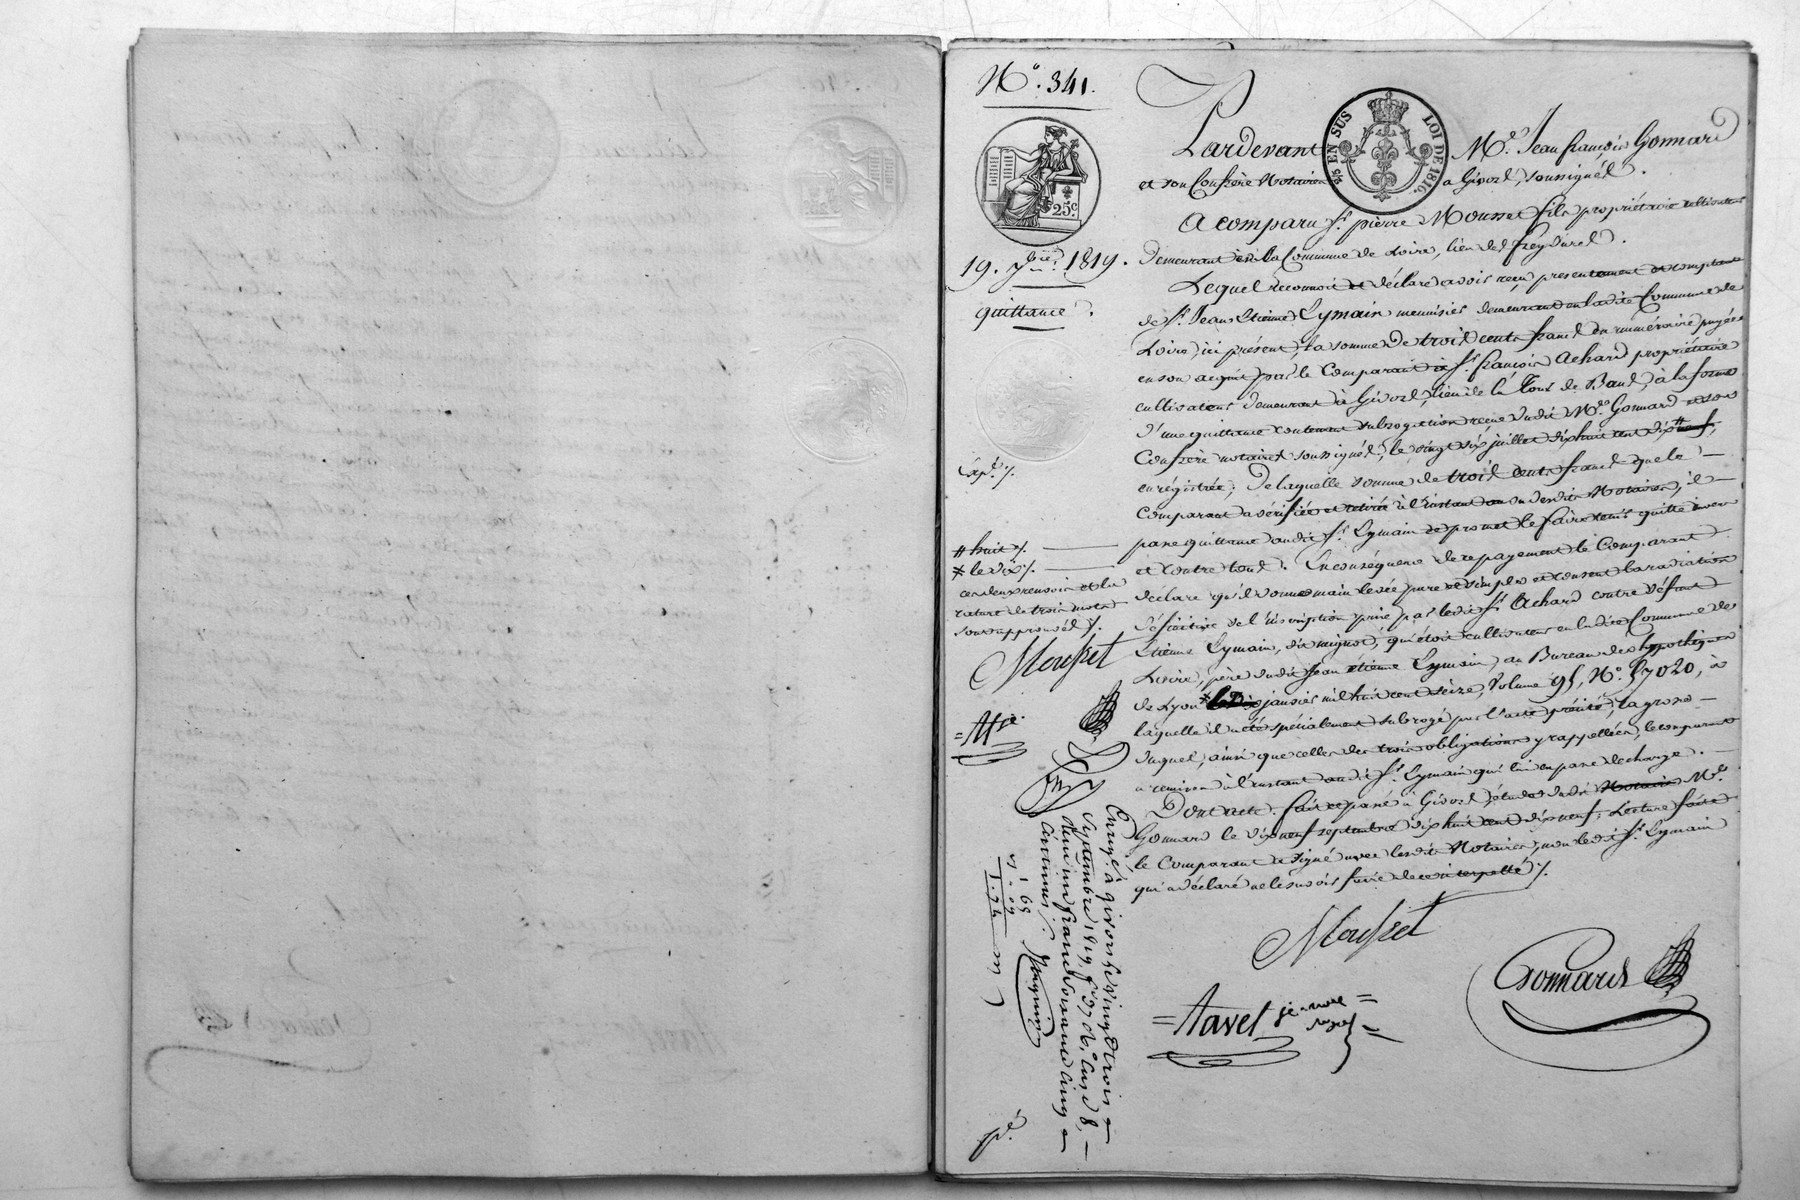 N.° 341.
25 EN SUS
LOI DE 1816.
25c.
19. 7bre 1819.
quittance.
Pardevant M.e Jean françois Gonnard
et son Confrère Notaires a Givors, soussignés.
A comparu S.r pierre Mousset fils propriétaire cultivateur
demeurant en la Commune de Loire, lieu des freydures.
Lequel reconnoit et déclare avoir reçu présentement et comptant
de S.r Jean Etienne Eymain menuisier demeurant en ladite Commune de
Loire, ici présent, la somme de trois cents francs en numéraire payée
en son acquit par le Comparant à S.r françois Achard propriétaire
cultivateur demeurant à Givors, lieu de la Tour de Baud, à la forme
d'une quittance contenant subrogation reçue dudit M.e Gonnard et son
Confrère notaires soussignés, le vingt six juillet dix huit cent dix # neuf,
enregistrée; De laquelle somme de trois cents francs que le
comparant a vérifiée et retirée à l'instant au vu desdits Notaires, il
passe quittance audit S.r Eymain et promet le faire tenir quitte envers
et contre tous. En conséquence de ce payement le Comparant
déclare qu'il donne main levée pure et simple et consent la radiation
définitive de l'inscription prise par ledit S.r Achard contre défunt
Etienne Eymain, dit mignot, qui étoit cultivateur en ladite Commune de
Loire, père dudit Jean etienne Eymain, au Bureau des hypothèques
de Lyon * janvier mil huit cent seize, Volume 95, N.° 57020, à
laquelle il a été spécialement subrogé par l'acte précité; la grosse
duquel, ainsi que celles des trois obligations y rappellées, le comparant
a remises à l'instant audit S.r Eymain qui lui en passe décharge.
Dont acte. fait et passé à Givors, étude dudit Notaire M.e
Gonnard le dix neuf septembre dix huit cent dix neuf; Lecture faite
le Comparant a signé avec lesdits Notaires, non ledit S.r Eymain
qui a déclaré ne le savoir faire de ce interpellé ./.
Expé ./.
# huit ./.
* le dix ./.
ces deux renvois et la
rature de trois mots
sont approuvés ./.
Mousset
Enregé à givors le vingt trois
septembre 1819, f° 37 v°, Cases 8,
reçu un franc soixante cinq
centimes ./.
1. 65
Mousset
Gonnard
Tavel